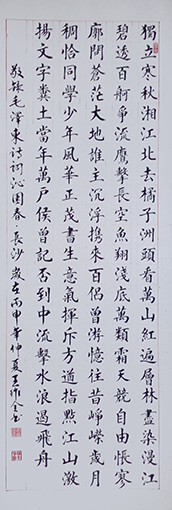 獨立寒秋湘江北去橘子洲頭看萬山紅遍層林盡染漫江
碧透百舸爭流鷹擊長空魚翔淺底萬類霜天競自由悵寥
廓問蒼茫大地誰主沉浮攜來百侶曾游憶往昔崢嶸歲月
稠恰同學少年風華正茂書生意氣揮斥方遒指點江山激
揚文字糞土當年萬戶侯曾記否到中流擊水浪遏飛舟
敬錄毛澤東詩詞沁園春長沙歲在丙申年仲夏王